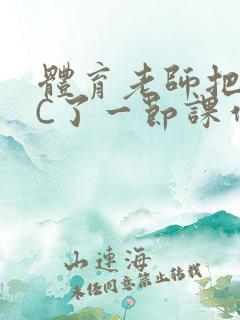 體育老師把
C了一節課作
山連海
未经同意禁止转载